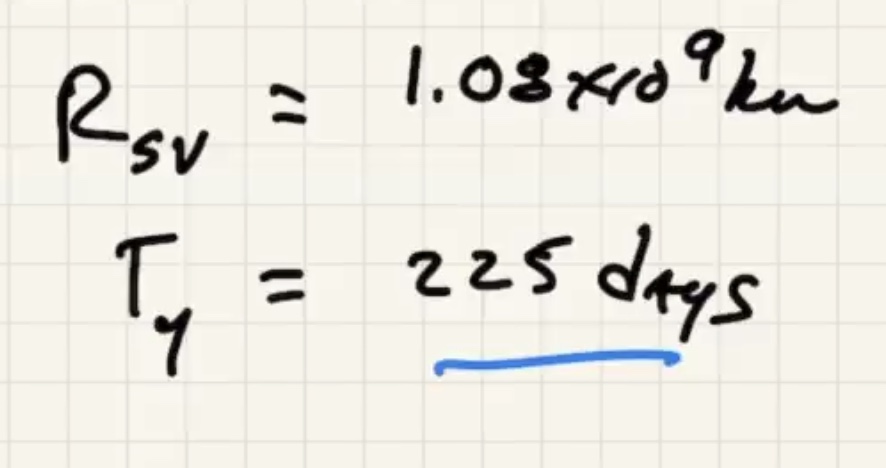 R_sv = 1.08 x 10^9 km
T_y = 225 days